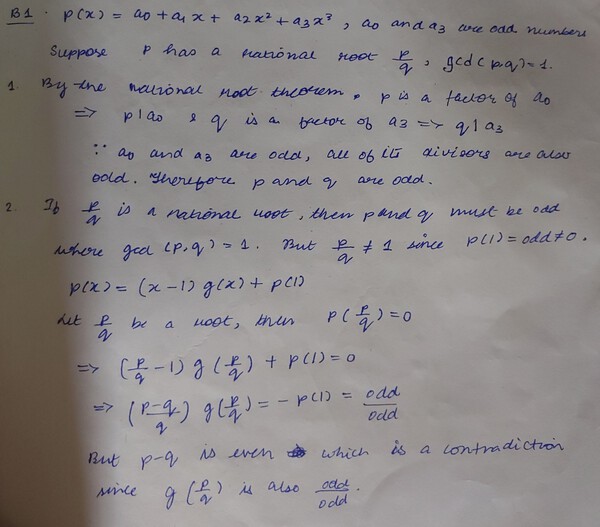 B1. p(x) = a₀ + a₁x + a₂x² + a₃x³, a₀ and a₃ are odd numbers
Suppose P has a rational root p/q, gcd(p,q)=1.
1. By the rational root theorem, p is a factor of a₀
=> p|a₀ & q is a factor of a₃ => q|a₃
∵ a₀ and a₃ are odd, all of its divisors are also
odd. Therefore p and q are odd.
2. If p/q is a rational root, then p and q must be odd
where gcd(p,q) = 1. But p/q ≠ 1 since p(1) = odd ≠ 0.
p(x) = (x-1) g(x) + p(1)
Let p/q be a root, then p(p/q) = 0
=> (p/q - 1) g(p/q) + p(1) = 0
=> ((p-q)/q) g(p/q) = -p(1) = odd/odd
But p-q is even which is a contradiction
since g(p/q) is also odd/odd.